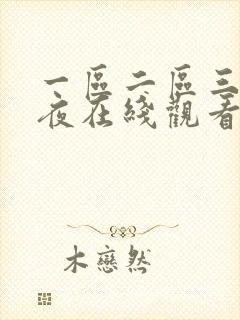 一區二區三
夜在綫觀看
木戀然